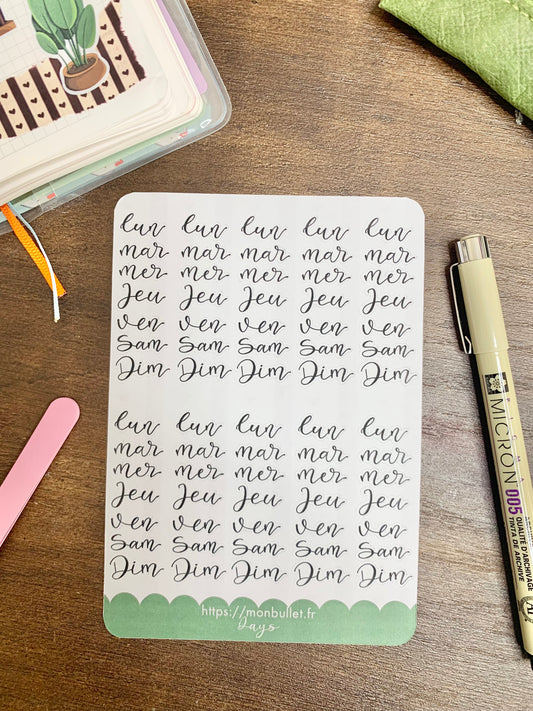 lun lun lun lun lun
mar mar mar mar mar
mer mer mer mer mer
Jeu Jeu Jeu Jeu Jeu
ven ven ven ven ven
Sam Sam Sam Sam Sam
Dim Dim Dim Dim Dim
lun lun lun lun lun
mar mar mar mar mar
mer mer mer mer mer
Jeu Jeu Jeu Jeu Jeu
ven ven ven ven ven
Sam Sam Sam Sam Sam
Dim Dim Dim Dim Dim
https://monbullet.fr
Days
MICRON 005
QUALITÉ D'ARCHIVAGE
TINTA DE ARCHIVE